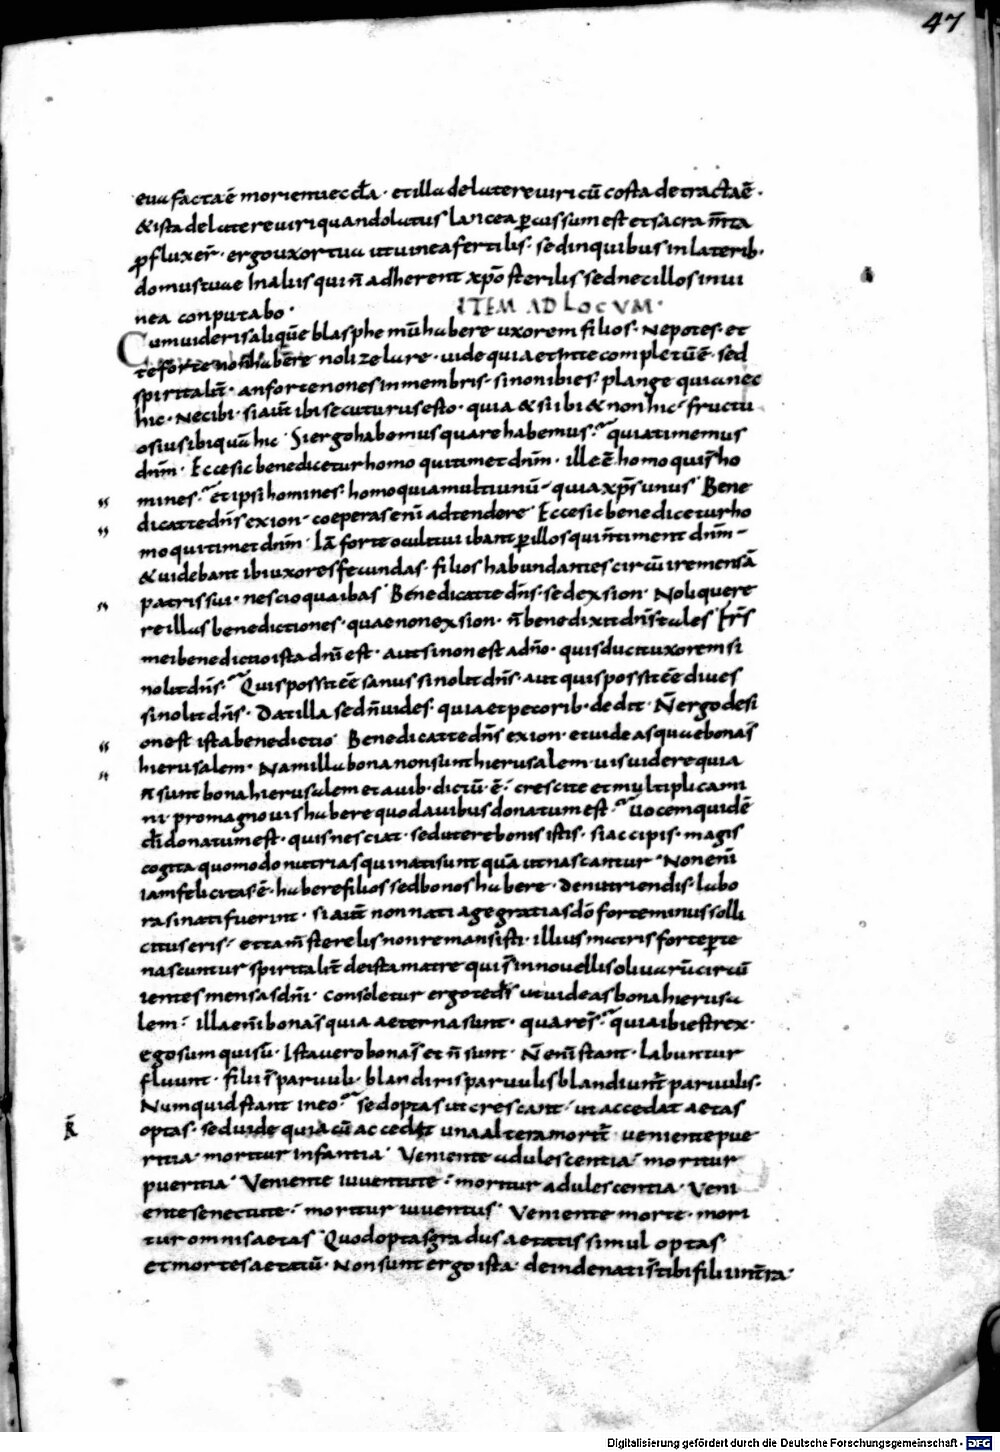 47
eva facta ē morienti eccła · et illa de latere viri cū costa detracta ē ·
& ista de latere viri quando latus lancea p̄cussum est et sacram̄ta
p̄fluxer̄ · ergo uxor tua ut vinea fertilis · sed in quibus in laterib·
domus tuae In aliis qui n̄ adherent xp̄o sterilis sed nec illos in vi
nea conputabo ·
ITEM AD LOCVM ·
Cum videris aliquē blasphemū habere uxorem filios · Nepotes · et
te forte non habēre noli zelare · vide quia et in te completū ē · sed
spiritalit̄ · an forte non es in membris · si non ibi es · plange quia nec
hic · Nec ibi · si aut̄ ibi secuturus esto · quia & si ibi & non hic · fructu
osius ibi quā hic Si ergo habemus quare habemus · quia timemus
dn̄m · Ecce sic benedicetur homo qui timet dn̄m · ille ē homo qui s̄ ho
mines · et ipsi homines · homo quia multi unū · quia xp̄s unus Bene
dicat te dn̄s ex ion · coeperas enī adtendere Ecce sic benedicetur ho
mo qui timet dn̄m Iā forte oculi tui ibant p̄ illos qui n̄ timent dn̄m ·
& videbant ibi uxores fecundas · filios habundantes circūire mensā
patris sui · nescio qua ibas Benedicat te dn̄s · sed ex sion · Noli quere
re illas benedictiones · quae non ex sion · n̄ benedixit dn̄s tales Fr̄s
mei benedictio ista dn̄i est · aut si non est a dn̄o · quis ducit uxorem si
nolit dn̄s · Quis possit eē sanus si nolit dn̄s · aut quis possit eē dives
si nolit dn̄s · Dat illa sed n̄ vides · quia et pecorib· dedit N̄ ergo de si
on est ista benedictio Benedicat te dn̄s ex ion · et videas quae bona s̄
hierusalem · Nam illa bona non sunt hierusalem · vis videre quia
n̄ sunt bona hierusalem et avib· dictū · ē · crescite et multiplicami
ni · pro magno vis habere quod avibus donatum est · Uocem quidē
di donatum est · quis nesciat · sed utere bonis istis · si accipis · magis
cogita quomodo nutrias qui nati sunt quā ut nascantur · Non enī
iam felicitas ē · habere filios sed bonos habere · De nutriendis · labo
ra si nati fuerint · si aut̄ non nati age gratias dō forte minus solli
citus eris · et tam̄ sterelis non remansisti · illius matris forte p̄ te
nascuntur spiritalit̄ de ista matre qui s̄ in novellis olivarū circū
ientes mensas dn̄i · Consoletur ergo te ds̄ ut videas bona hierusa
lem · illa enī bona s̄ quia aeterna sunt · quare s̄ · quia ibi est rex ·
ego sum qui sū · Ista vero bona s̄ et n̄ sunt · N̄ enī stant · labuntur
fluunt · filii s̄ parvuli · blandiris parvulis blandiunt̄ parvulis ·
Numquid stant in eo · sed optas ut crescant · ut accedat aetas
optas · sed vide quia cū accedit una altera morit̄ veniente pue
ritia · moritur infantia · Veniente adulescentia · moritur
pueritia · Veniente iuventute · moritur adulescentia · Veni
ente senectute · moritur iuventus · Veniente morte · mori
tur omnis aetas Quod optas gradus aetatis simul optas
et mortes aetatū · Non sunt ergo ista · deinde nati s̄ tibi filii in t̄ra ·
Digitalisierung gefördert durch die Deutsche Forschungsgemeinschaft - DFG